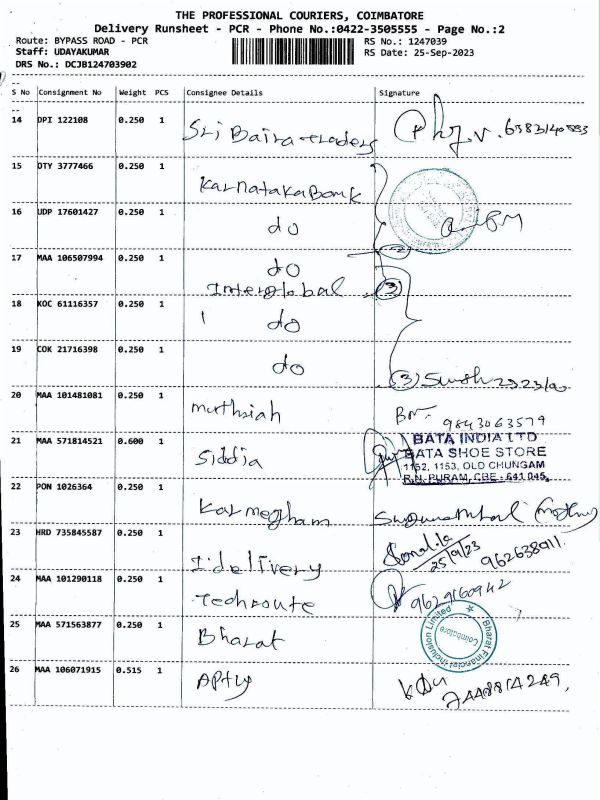 THE PROFESSIONAL COURIERS, COIMBATORE
Delivery Runsheet - PCR - Phone No.:0422-3505555 - Page No.:2
Route: BYPASS ROAD - PCR
Staff: UDAYAKUMAR
DRS No.: DCJB124703902
RS No.: 1247039
RS Date: 25-Sep-2023
S No Consignment No Weight PCS Consignee Details Signature
14 DPI 122108 0.250 1 Sri Baira traders
15 DTY 3777466 0.250 1 Karnataka Bank
16 UDP 17601427 0.250 1 do
17 MAA 106507994 0.250 1 do
Interglobal (3)
18 KOC 61116357 0.250 1 do
19 COK 21716398 0.250 1 do
(3)
20 MAA 101481081 0.250 1 muthsiah 9843063579
21 MAA 571814521 0.600 1 Siddia
BATA INDIA LTD
BATA SHOE STORE
1152, 1153, OLD CHUNGAM
R.N. PURAM, CBE - 641 045.
22 PON 1026364 0.250 1 Karmegham
23 HRD 735845587 0.250 1 Idelivery
25/9/23 962638911.
24 MAA 101290118 0.250 1 Techroute 9629160942
25 MAA 571563877 0.250 1 Bharat
Bharat Financial Inclusion Limited
Coimbatore
26 MAA 106071915 0.515 1 Aptly